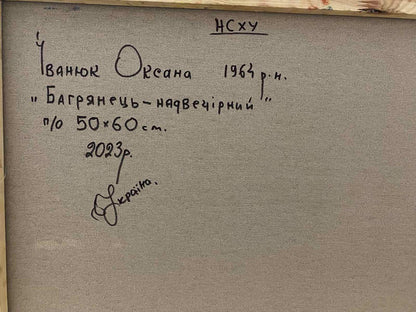 НСХУ
Іванюк Оксана 1964 р.н.
„Багрянець-надвечірний"
п/о 50×60 см.
2023р.
Україна.